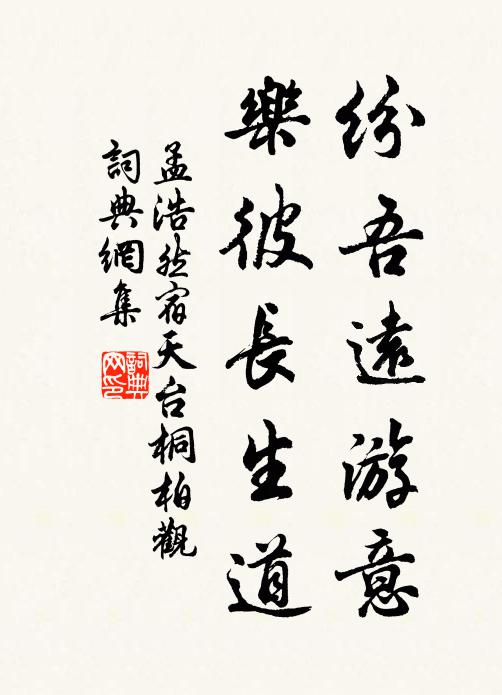 紛吾遠游意
樂彼長生道
孟浩然宿天台桐柏觀
詞典網集
詞典
网印